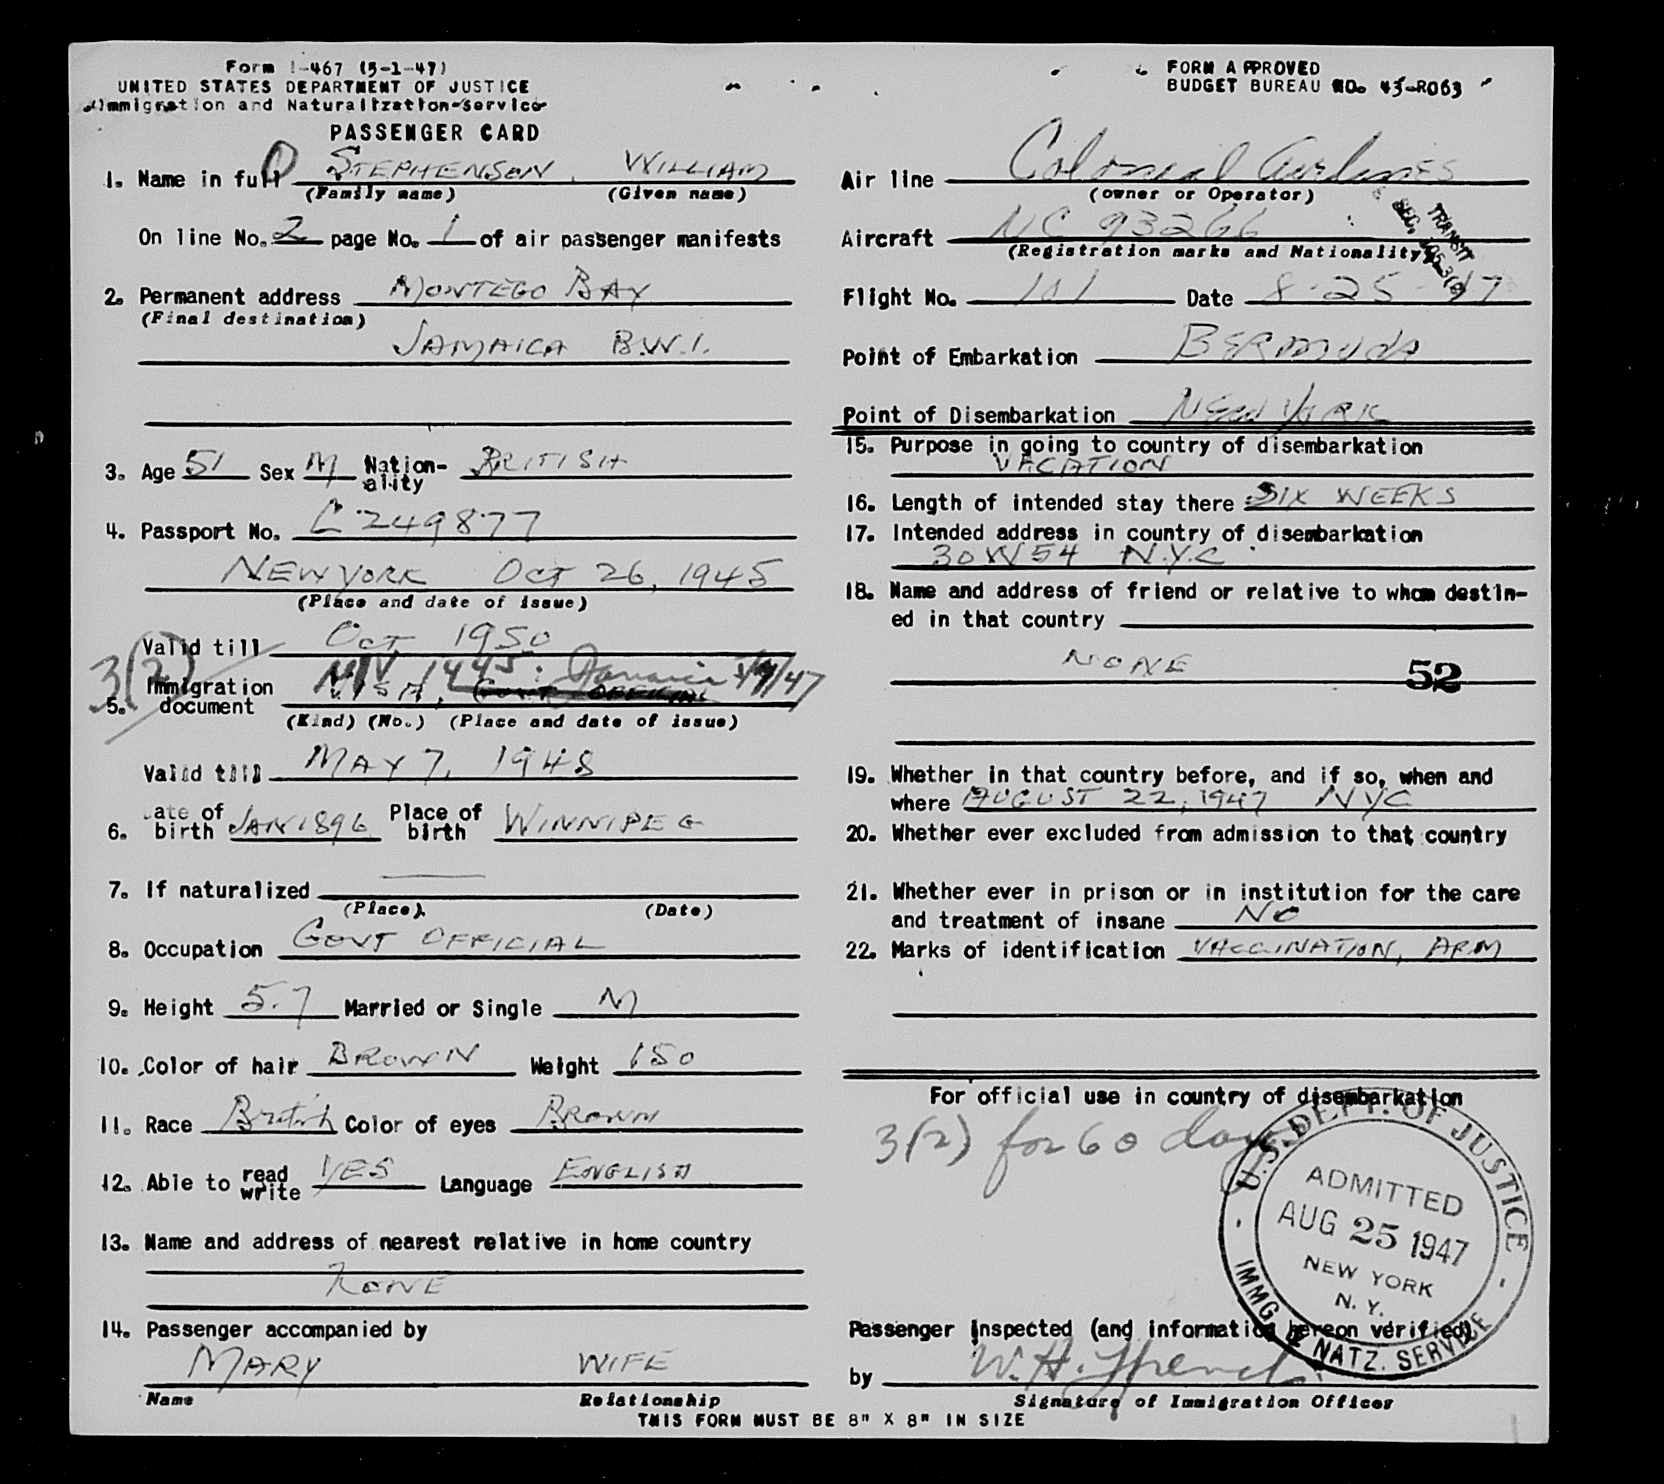 Form I-467 (5-1-47)
UNITED STATES DEPARTMENT OF JUSTICE
Immigration and Naturalization Service
PASSENGER CARD
FORM APPROVED
BUDGET BUREAU NO. 43-R063
1. Name in full STEPHENSON, WILLIAM
(Family name) (Given name)
On line No. 2 page No. 1 of air passenger manifests
2. Permanent address MONTEGO BAY
(Final destination)
JAMAICA B.W.I.
3. Age 51 Sex M Nation-ality BRITISH
4. Passport No. C 249877
NEW YORK OCT 26, 1945
(Place and date of issue)
Valid till OCT 1950
3(2)
5. Immigration document NIV 1445: Jamaica 5/7/47
VISA, GOVT OFFICIAL
(Kind) (No.) (Place and date of issue)
Valid till MAY 7, 1948
6. Date of birth JAN 1896 Place of birth WINNIPEG
7. If naturalized —
(Place) (Date)
8. Occupation GOVT OFFICIAL
9. Height 5.7 Married or Single M
10. Color of hair BROWN Weight 150
11. Race British Color of eyes BROWN
12. Able to read write YES Language ENGLISH
13. Name and address of nearest relative in home country
NONE
14. Passenger accompanied by
MARY WIFE
Name Relationship
Air line Colonial Airlines
(owner or Operator)
TRANSIT
SEC.
Aircraft NC 93266
(Registration marks and Nationality)
Flight No. 101 Date 8-25-47
Point of Embarkation BERMUDA
Point of Disembarkation NEW YORK
15. Purpose in going to country of disembarkation
VACATION
16. Length of intended stay there SIX WEEKS
17. Intended address in country of disembarkation
30 W 54 N.Y.C.
18. Name and address of friend or relative to whom destin-
ed in that country
NONE 52
19. Whether in that country before, and if so, when and
where AUGUST 22, 1947 NYC
20. Whether ever excluded from admission to that country
21. Whether ever in prison or in institution for the care
and treatment of insane NO
22. Marks of identification VACCINATION, ARM
For official use in country of disembarkation
3(2) for 60 days
U.S. DEPT. OF JUSTICE
ADMITTED
AUG 25 1947
NEW YORK
N. Y.
IMMG. & NATZ. SERVICE
Passenger inspected (and information hereon verified)
by W. H.
Signature of Immigration Officer
THIS FORM MUST BE 8" X 8" IN SIZE